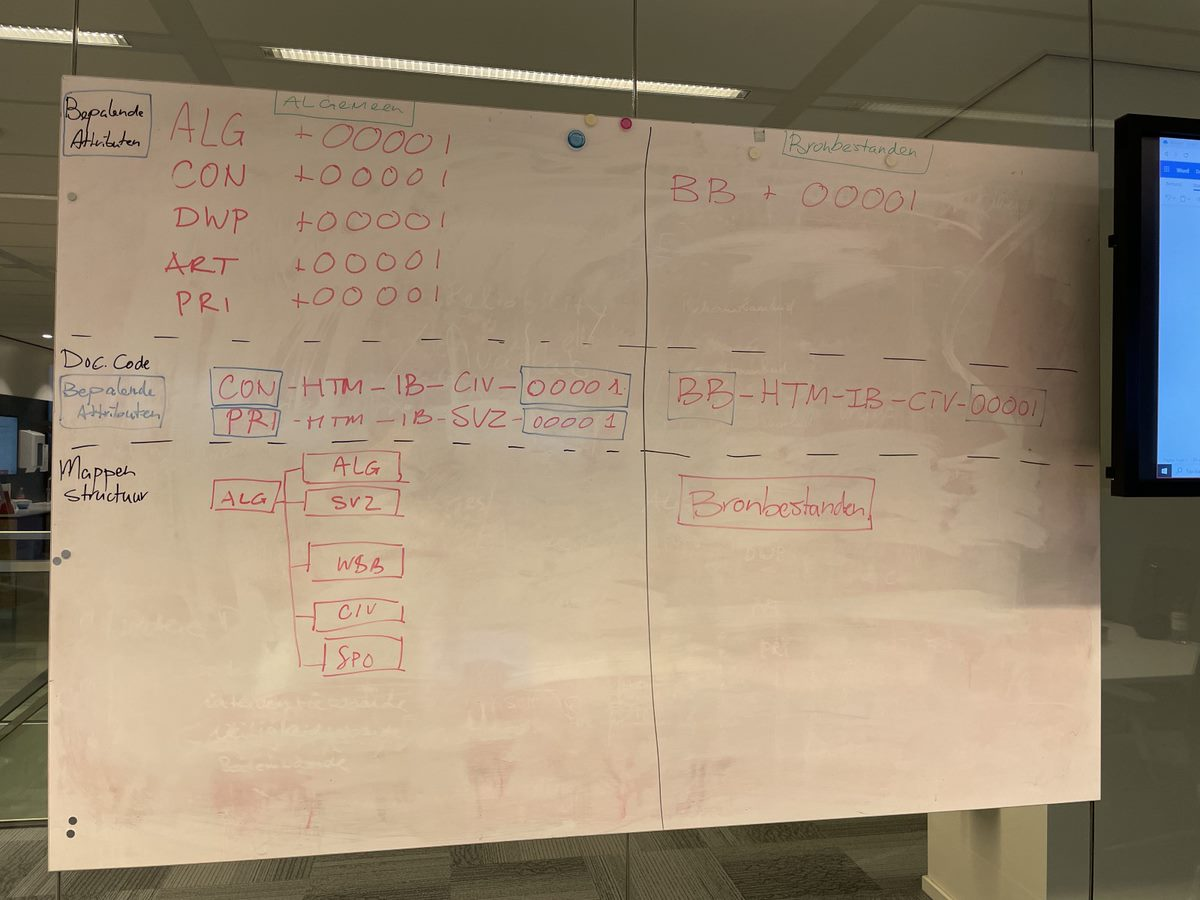 Bepalende
Attributen
ALGemeen
ALG +00001
CON +00001
DWP +00001
ART +00001
PRI +00001
Bronbestanden
BB + 00001
Doc. Code
Bepalende
Attributen
CON-HTM-IB-CIV-00001
PRI-HTM-IB-SVZ-00001
BB-HTM-IB-CIV-00001
Mappen
structuur
ALG
ALG
SVZ
W&B
CIV
SPO
Bronbestanden
Word
DWP
PRI